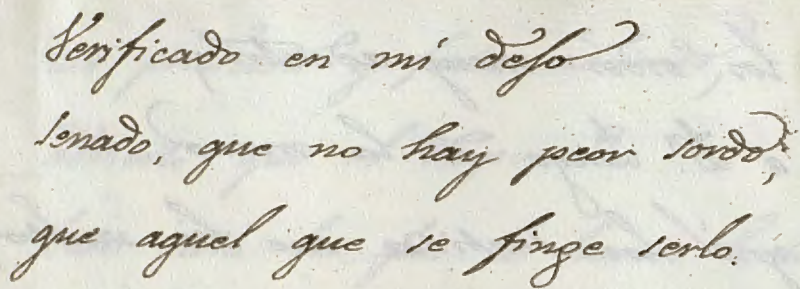 Verificado en mi deso
senado, que no hay peor sordo,
que aquel que se finge serlo.